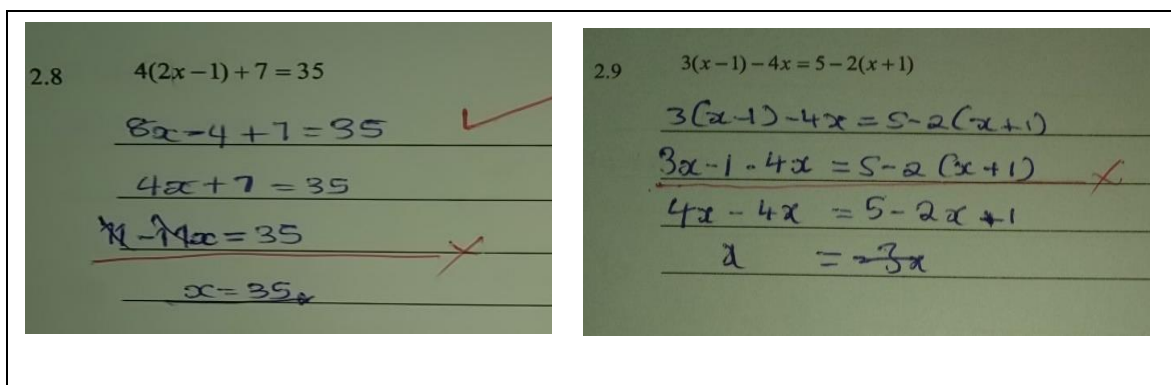 2.8 4(2x – 1) + 7 = 35
8x – 4 + 7 = 35
4x + 7 = 35
11x = 35
x = 35
2.9 3(x – 1) – 4x = 5 – 2(x + 1)
3(x-1) - 4x = 5 - 2(x+1)
3x - 1 - 4x = 5 - 2(x+1)
4x - 4x = 5 - 2x + 1
x = 3x